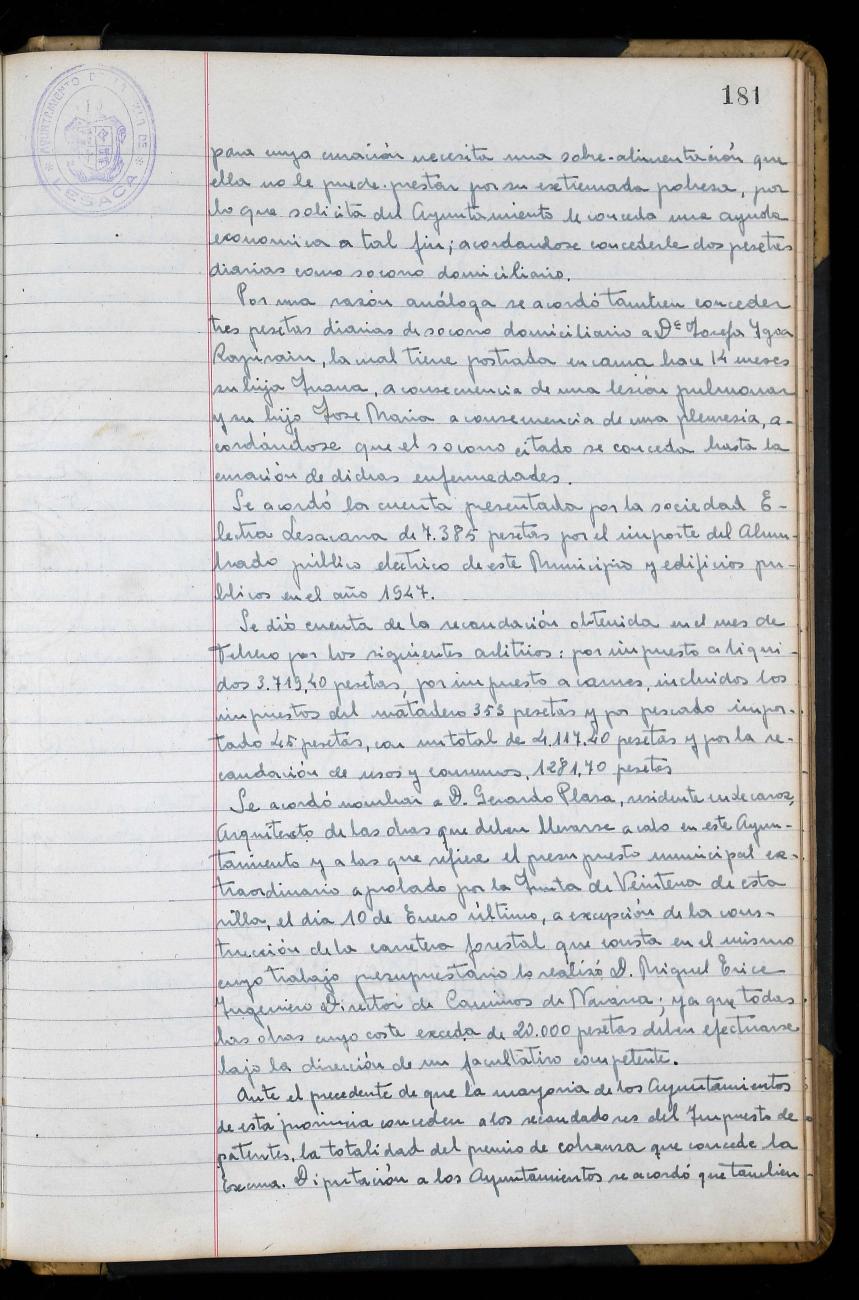 181
AYUNTAMIENTO DE LA VILLA DE
LESACA
para cuya curación necesita una sobre-alimentación que
ella no le puede prestar por su extremada pobresa, por
lo que solicita del Ayuntamiento le conceda una ayuda
economica a tal fin; acordandose concederle dos pesetas
diarias como socorro domiciliario.
Por una razón análoga se acordó tambien conceder
tres pesetas diarias de socorro domiciliario a Dª Josefa Ygoa
, la cual tiene postrada en cama hace 14 meses
su hija Juana, a consecuencia de una lesión pulmonar
y su hijo Jose Maria a consecuencia de una pleuresia, a-
cordándose que el socorro citado se conceda hasta la
curación de dichas enfermedades.
Se acordó la cuenta presentada por la sociedad E-
lectra Lesacana de 7.385 pesetas por el importe del Alum-
brado público electrico de este Municipio y edificios pu-
blicos en el año 1947.
Se dió cuenta de la recaudación obtenida en el mes de
Febrero por los siguientes arbitrios: por impuesto a liqui-
dos 3.719,40 pesetas, por impuesto a carnes, incluidos los
impuestos del matadero 353 pesetas y por pescado impor-
tado 45 pesetas, con un total de 4.117.40 pesetas y por la re-
caudación de usos y consumos, 1281,70 pesetas
Se acordó nombrar a D. Gerardo Plaza, residente en Lecaroz,
Arquitecto de las obras que deben llevarse a cabo en este Ayun-
tamiento y a las que refiere el presupuesto municipal ex-
traordinario aprobado por la Junta de Veintena de esta
villa, el dia 10 de Enero último, a excepción de la cons-
trucción de la carretera forestal que consta en el mismo
cuyo trabajo presupuestario lo realizó D. Miguel Erice
Ingeniero Director de Caminos de Navarra; ya que todas
las obras cuyo coste exceda de 20.000 pesetas deben efectuarse
bajo la dirección de un facultativo competente.
Ante el precedente de que la mayoria de los Ayuntamientos
de esta provincia conceden a los recaudadores del Impuesto de
patentes, la totalidad del premio de cobransa que concede la
Excma. Diputación a los Ayuntamientos se acordó que tambien